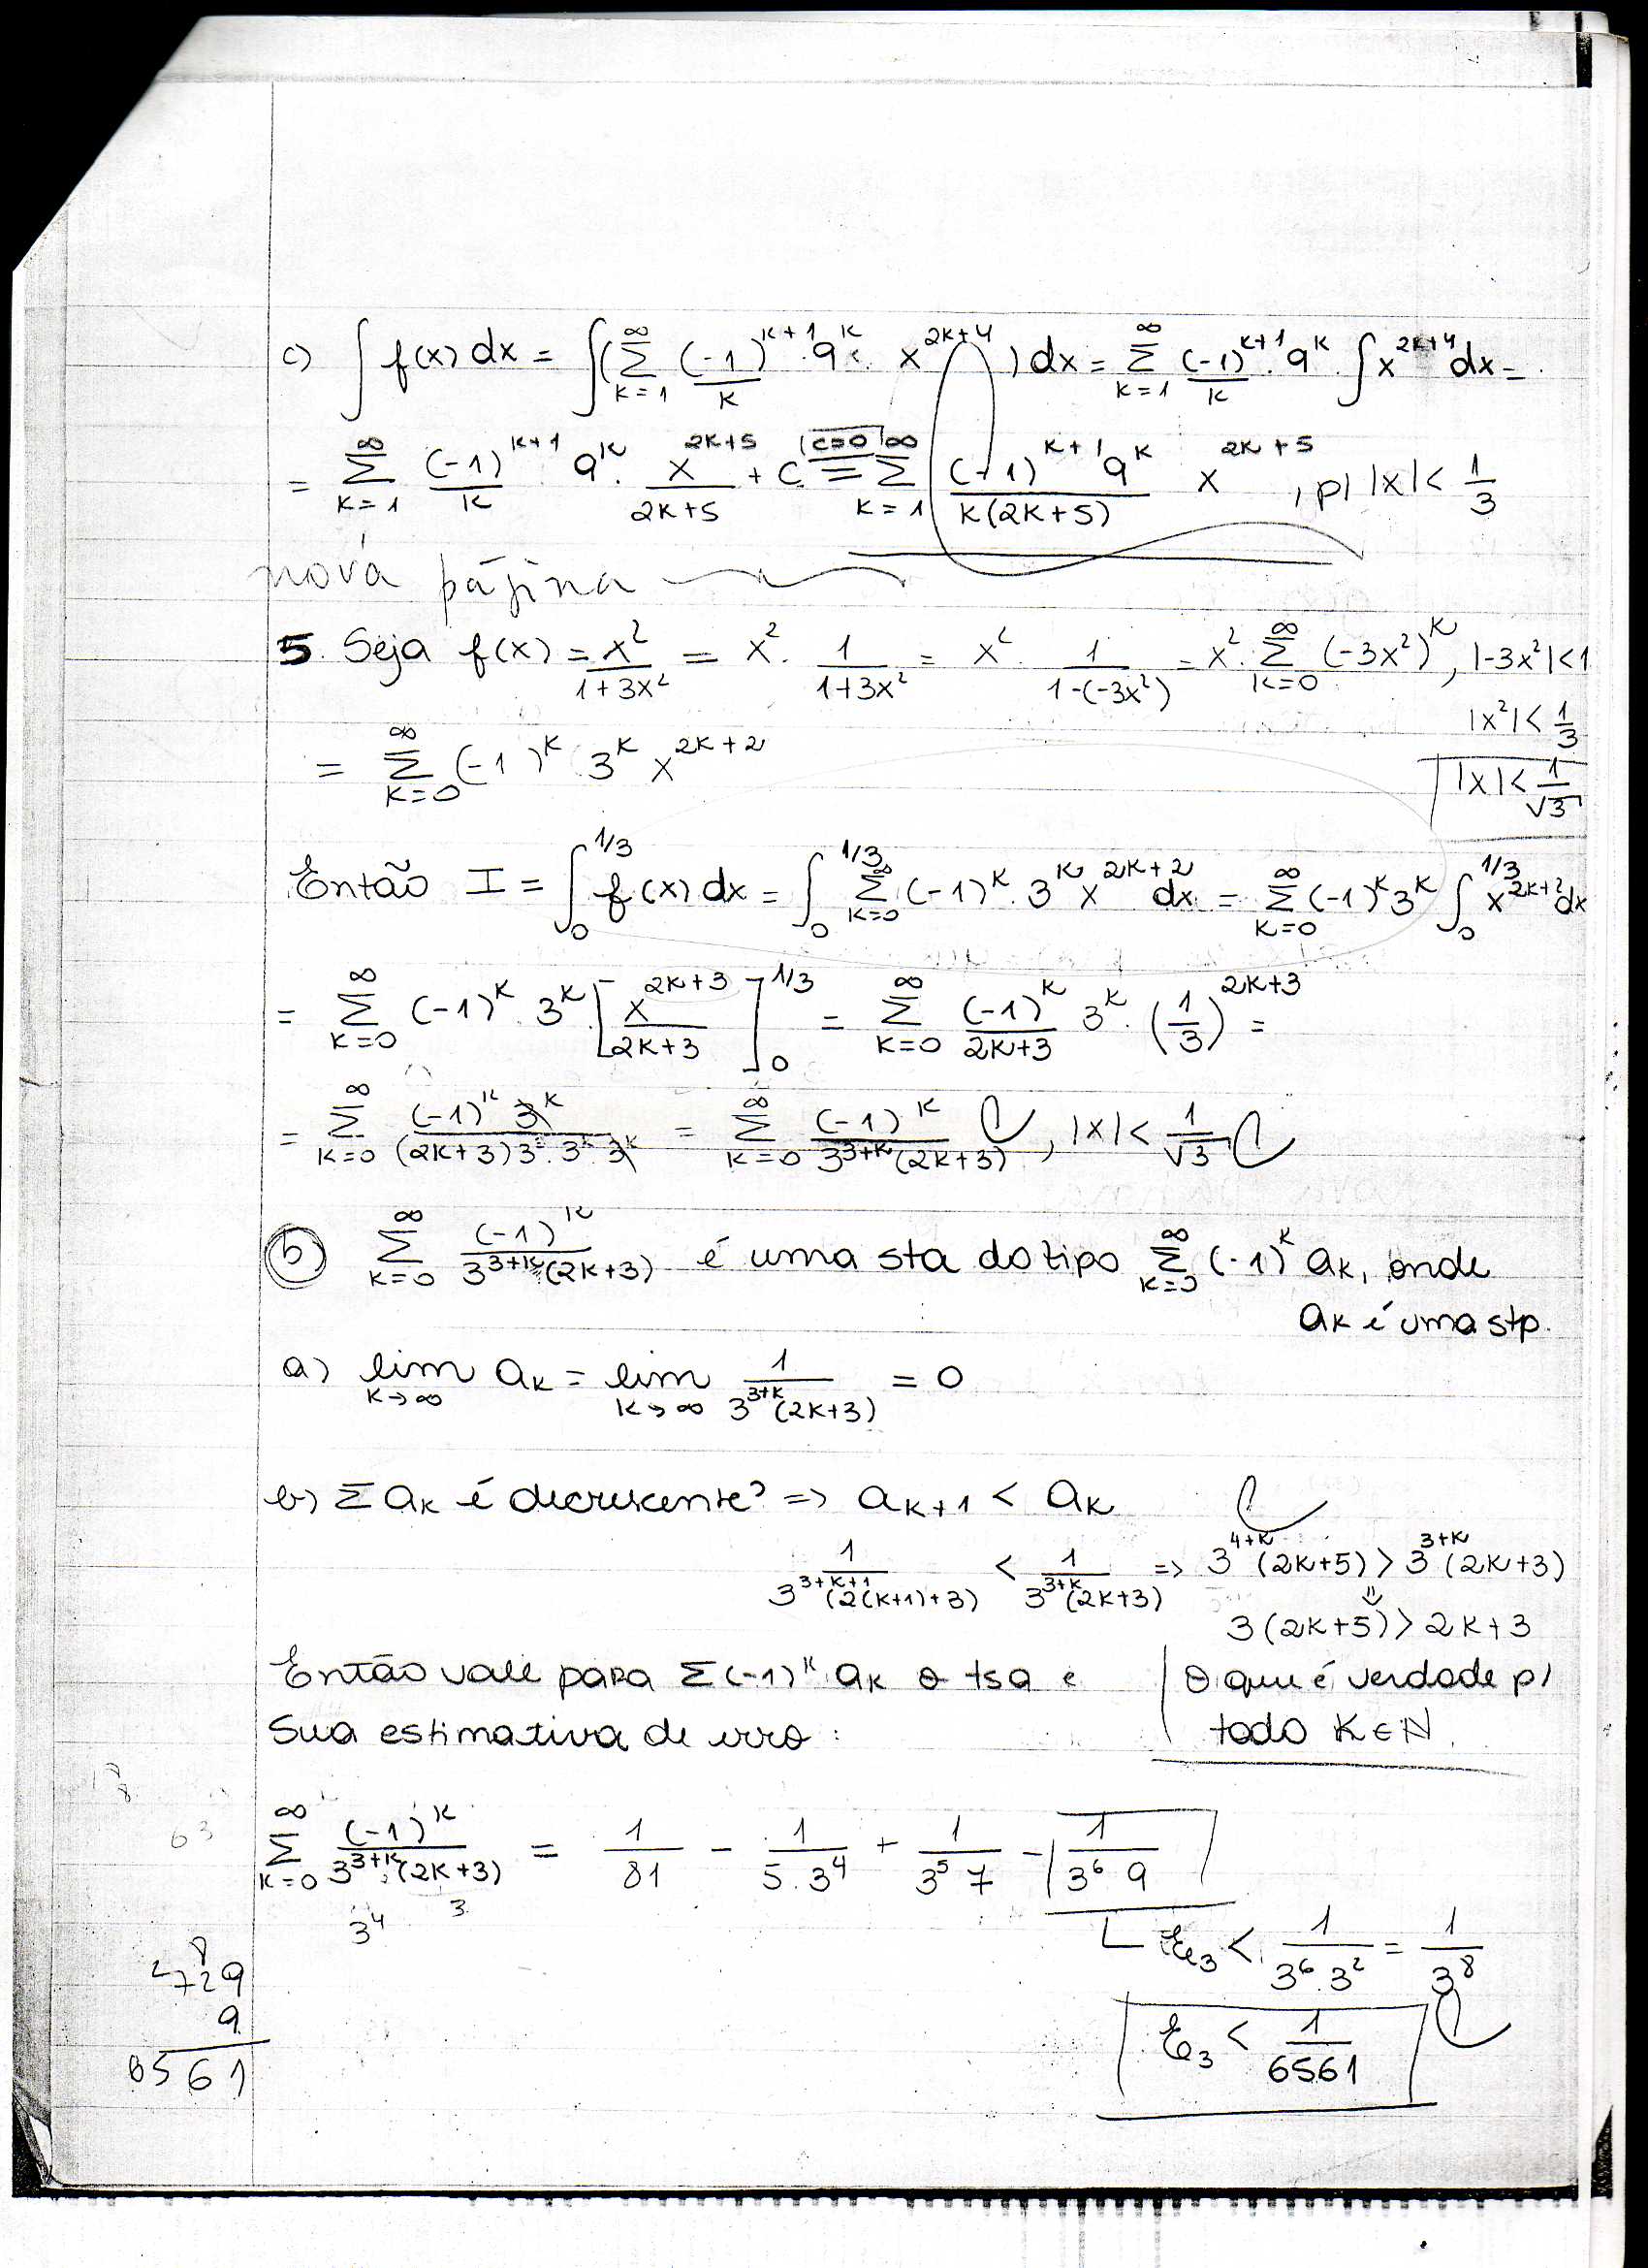 c) ∫ f(x) dx = ∫( ∑_{k=1}^{∞} (-1)^{k+1}/k · 9^k · x^{2k+4} ) dx = ∑_{k=1}^{∞} (-1)^{k+1}/k · 9^k · ∫ x^{2k+4} dx =
= ∑_{k=1}^{∞} (-1)^{k+1}/k 9^k · x^{2k+5}/(2k+5) + C =^{c=0} ∑_{k=1}^{∞} (-1)^{k+1} 9^k/(k(2k+5)) x^{2k+5}, p/ |x| < 1/3
nova página
5. Seja f(x) = x²/(1+3x²) = x² · 1/(1+3x²) = x² · 1/(1-(-3x²)) = x² · ∑_{k=0}^{∞} (-3x²)^k, |-3x²| < 1
|x²| < 1/3
= ∑_{k=0}^{∞} (-1)^k · 3^k x^{2k+2}
|x| < 1/√3
Então I = ∫_0^{1/3} f(x) dx = ∫_0^{1/3} ∑_{k=0}^{∞} (-1)^k · 3^k x^{2k+2} dx = ∑_{k=0}^{∞} (-1)^k 3^k ∫_0^{1/3} x^{2k+2} dx
= ∑_{k=0}^{∞} (-1)^k · 3^k · [x^{2k+3}/(2k+3)]_0^{1/3} = ∑_{k=0}^{∞} (-1)^k/(2k+3) 3^k · (1/3)^{2k+3} =
= ∑_{k=0}^{∞} (-1)^k 3^k/((2k+3) 3³ · 3^k · 3^k) = ∑_{k=0}^{∞} (-1)^k/(3^{3+k} (2k+3)), |x| < 1/√3
b) ∑_{k=0}^{∞} (-1)^k/(3^{3+k} (2k+3)) é uma sta do tipo ∑_{k=0}^{∞} (-1)^k a_k, onde
a_k é uma stp.
a) lim_{k→∞} a_k = lim_{k→∞} 1/(3^{3+k} (2k+3)) = 0
b) ∑ a_k é decrescente? => a_{k+1} < a_k
1/(3^{3+k+1} (2(k+1)+3)) < 1/(3^{3+k} (2k+3)) => 3^{4+k} (2k+5) > 3^{3+k} (2k+3)
⇓
3(2k+5) > 2k+3
Então vale para ∑(-1)^k a_k o tsa e
O que é verdade p/
sua estimativa de erro:
todo K ∈ N.
63
∑_{k=0}^{∞} (-1)^k/(3^{3+k} · (2k+3)) = 1/81 - 1/(5 · 3⁴) + 1/(3⁵ 7) - 1/(3⁶ 9)
3⁴ 3
E₃ < 1/(3⁶ · 3²) = 1/3⁸
2 8
729
9
6561
E₃ < 1/6561